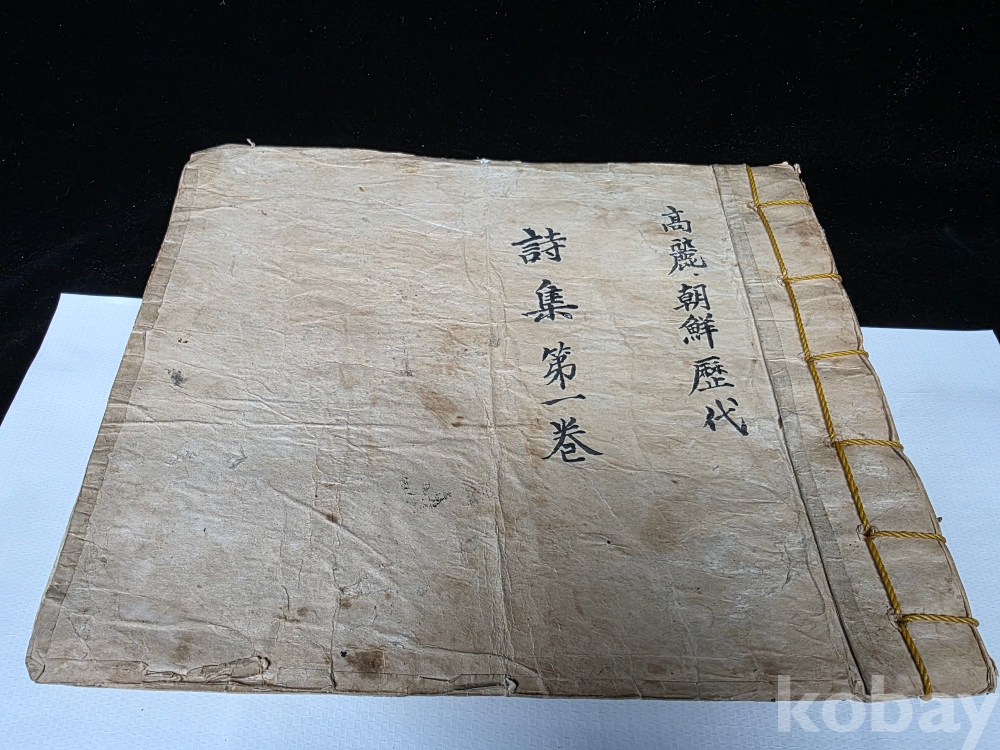 高麗·朝鮮歷代
詩集 第一卷
kobay